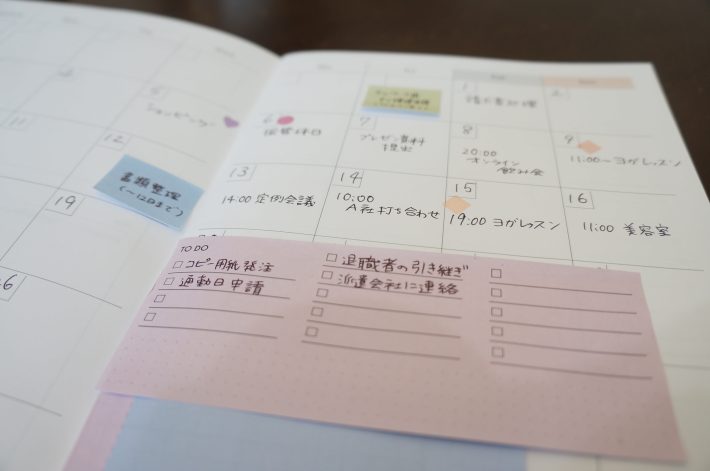 5
ショッピング
11
12
書類整理
(～12日まで)
19
1
請求書処理
2
6
振替休日
7
プレゼン資料
提出
8
20:00
オンライン
飲み会
9
11:00～ヨガレッスン
13
14:00 定例会議
14
10:00
A社打ち合わせ
15
19:00 ヨガレッスン
16
11:00 美容室
TO DO
コピー用紙発注
通勤日申請
退職者の引き継ぎ
派遣会社に連絡